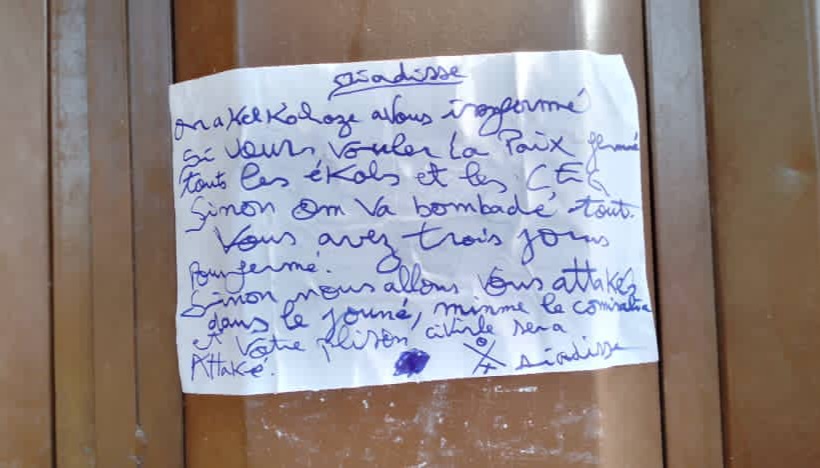 Diadisse
on a Kelkohoze a Vous inxformé
Si Vours vouler La Paix fermé
touts les éKols et les CEG
Sinon om va bombadé tout.
Vous avez trois jours
Pour fermé.
Sinon nous allons Vous attaker
dans le jouné, minme le comisatia
et Votre plison civirle sera
Attaké.
siadisse